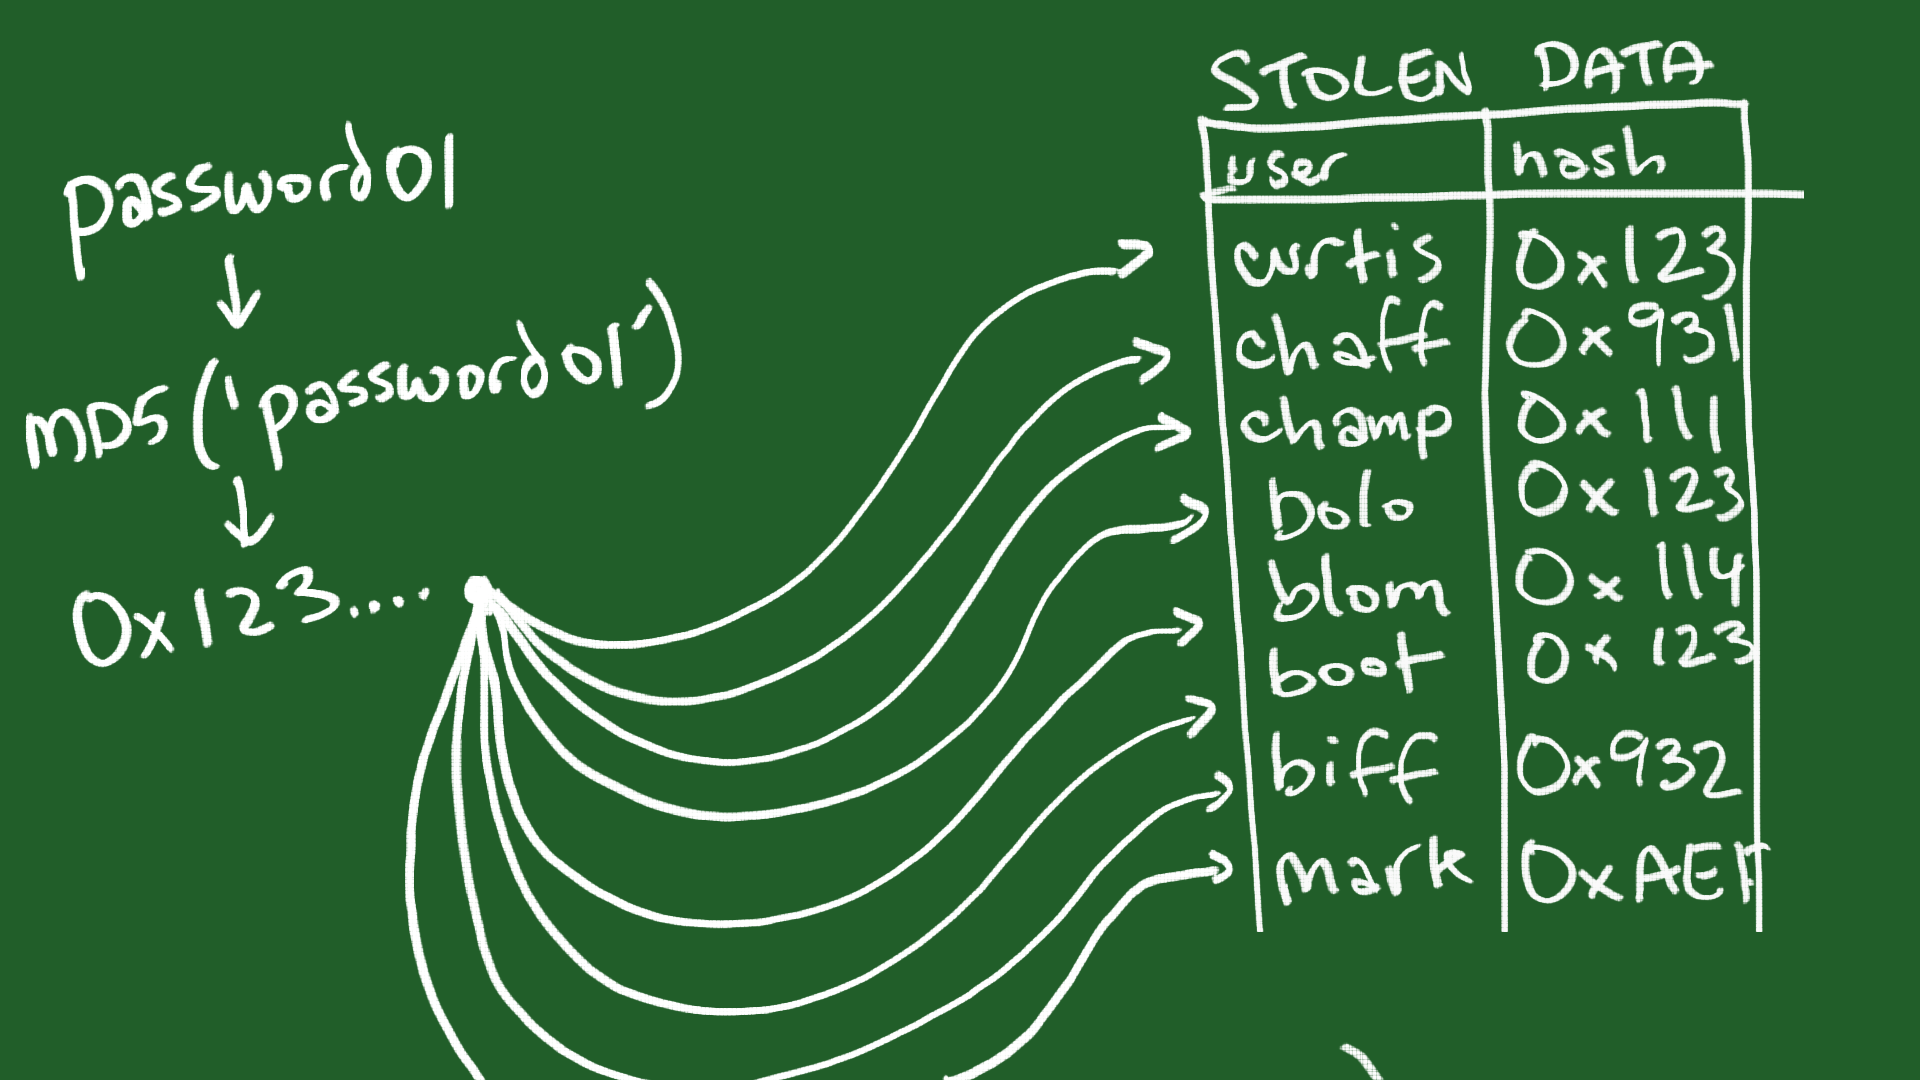 password01
MD5('password01')
0x123....
STOLEN DATA
user hash
curtis 0x123
chaff 0x931
champ 0x111
bolo 0x123
blom 0x114
boot 0x123
biff 0x932
mark 0xAEF